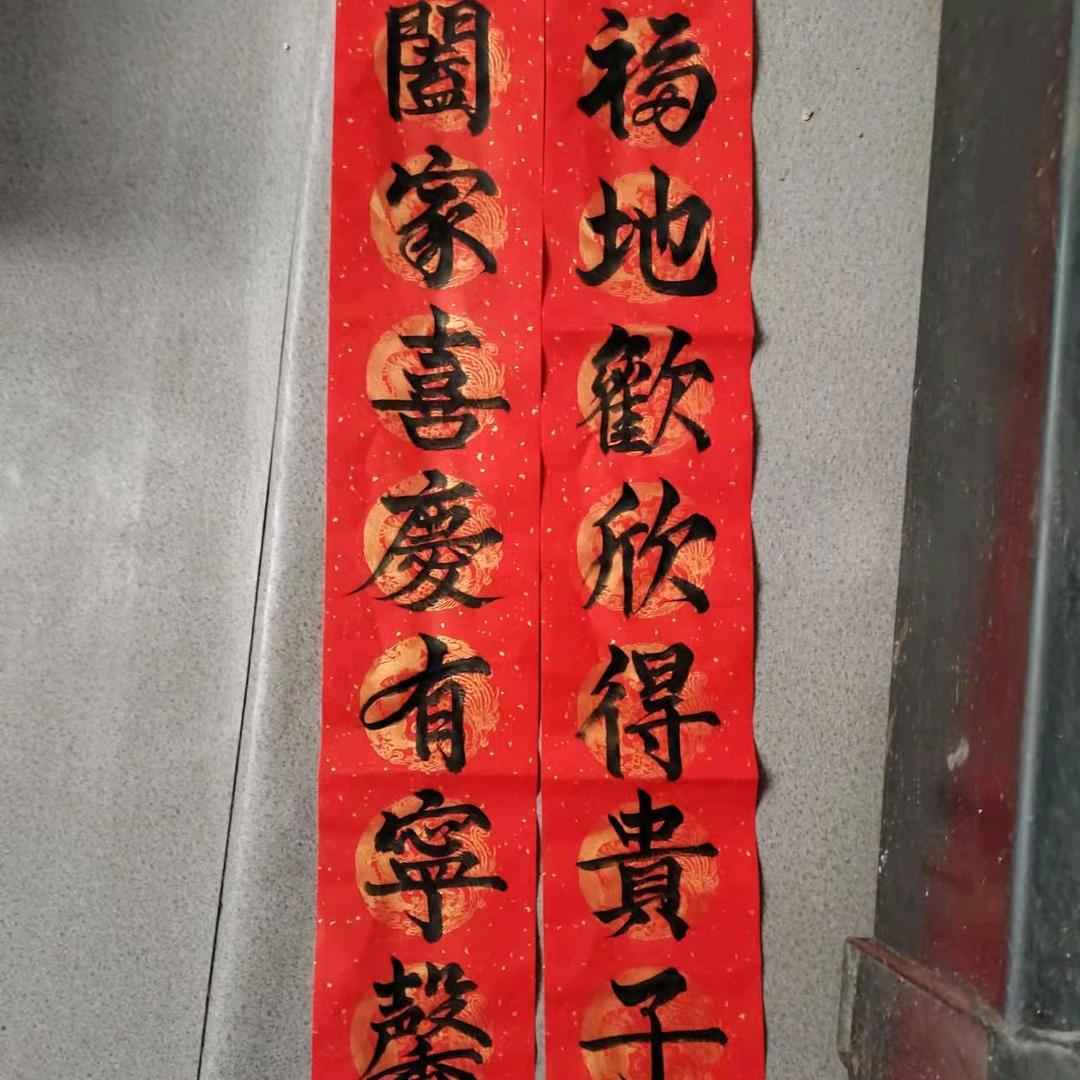 福地歡欣得貴子
闔家喜慶有寧馨